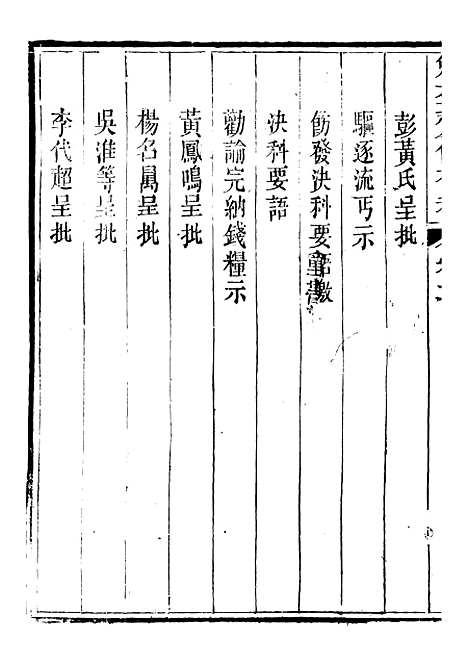 彭黃氏呈批
驅逐流丐示
飭發決科要語檄
決科要語
勸諭完納錢糧示
黃鳳鳴呈批
楊名高呈批
吳淮等呈批
李代超呈批